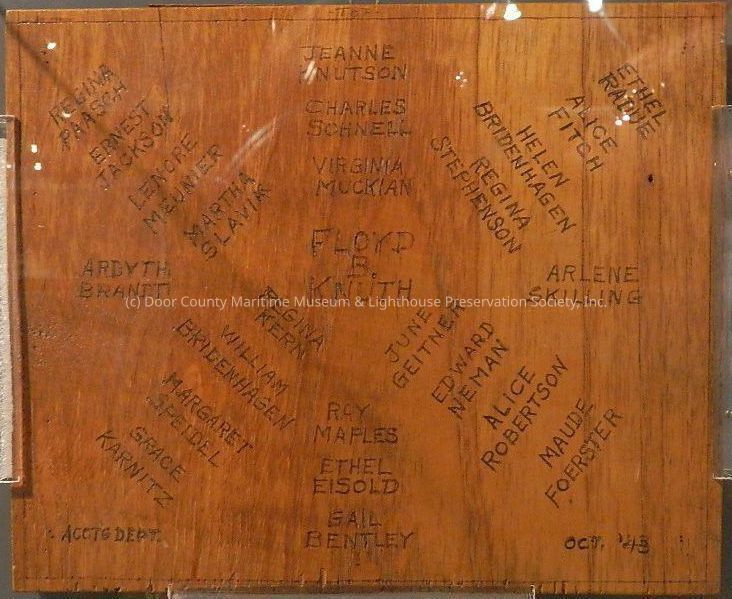 JEANNE
KNUTSON
CHARLES
SCHNELL
VIRGINIA
MUCKIAN
REGINA
PAASCH
ERNEST
JACKSON
LENORE
MEUNIER
MARTHA
SLAVIK
ETHEL
RADUE
ALICE
FITCH
HELEN
BRIDENHAGEN
REGINA
STEPHENSON
ARDYTH
BRANDT
FLOYD
B.
KNUTH
ARLENE
SKILLING
(c) Door County Maritime Museum & Lighthouse Preservation Society, Inc.
REGINA
KERN
WILLIAM
BRIDENHAGEN
MARGARET
SPEIDEL
GRACE
KARNITZ
JUNE
GEITNER
EDWARD
NEMAN
ALICE
ROBERTSON
MAUDE
FOERSTER
RAY
MAPLES
ETHEL
EISOLD
GAIL
BENTLEY
ACCTG DEPT.
OCT. '43